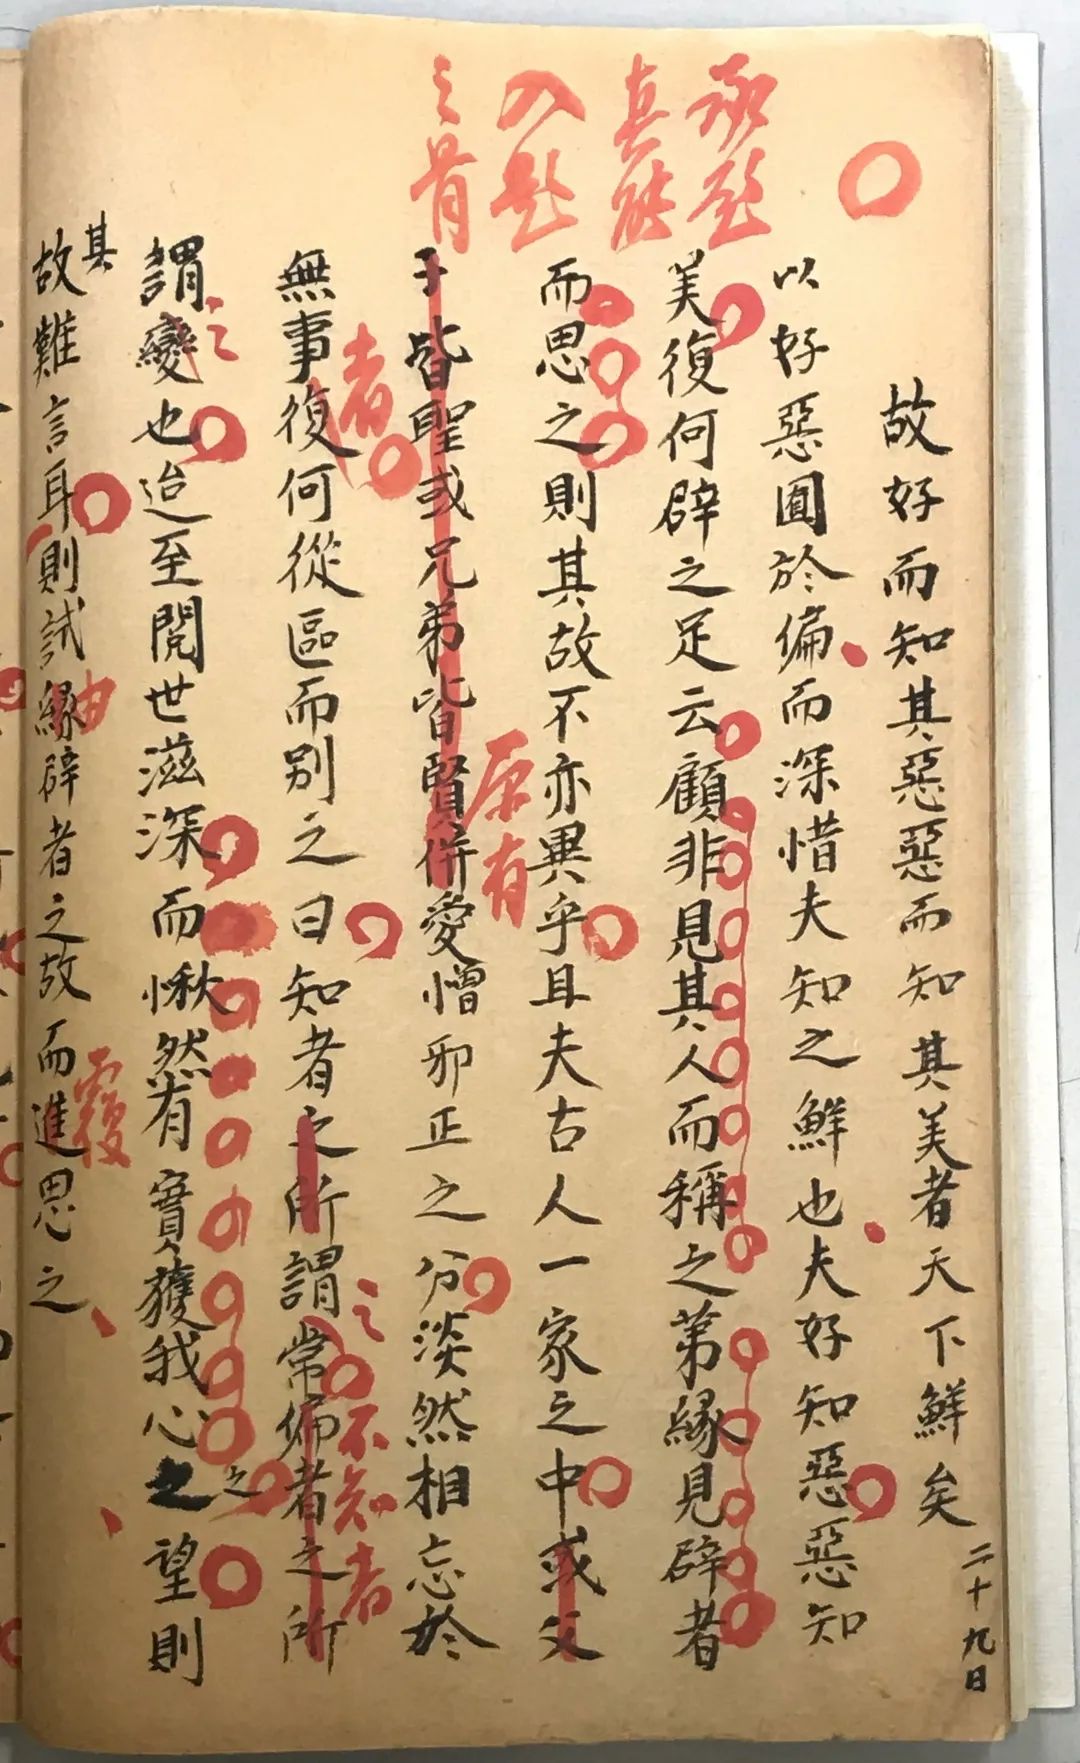 承題
真能
入題
之骨
故好而知其惡惡而知其美者天下鮮矣
二十九日
以好惡囿於偏而深惜夫知之鮮也夫好知惡惡知
美復何辟之足云顧非見其人而稱之第緣見辟者
而思之則其故不亦異乎且夫古人一家之中或父
子皆聖或兄弟皆賢併愛憎邪正之分淡然相忘於
原有
無事復何從區而別之曰知者之所謂常偏者之所
者
之
不知者
謂變也迨至閱世滋深而愀然有實獲我心之望則
之
之
故難言耳則試緣辟者之故而進思之
其
由
覆